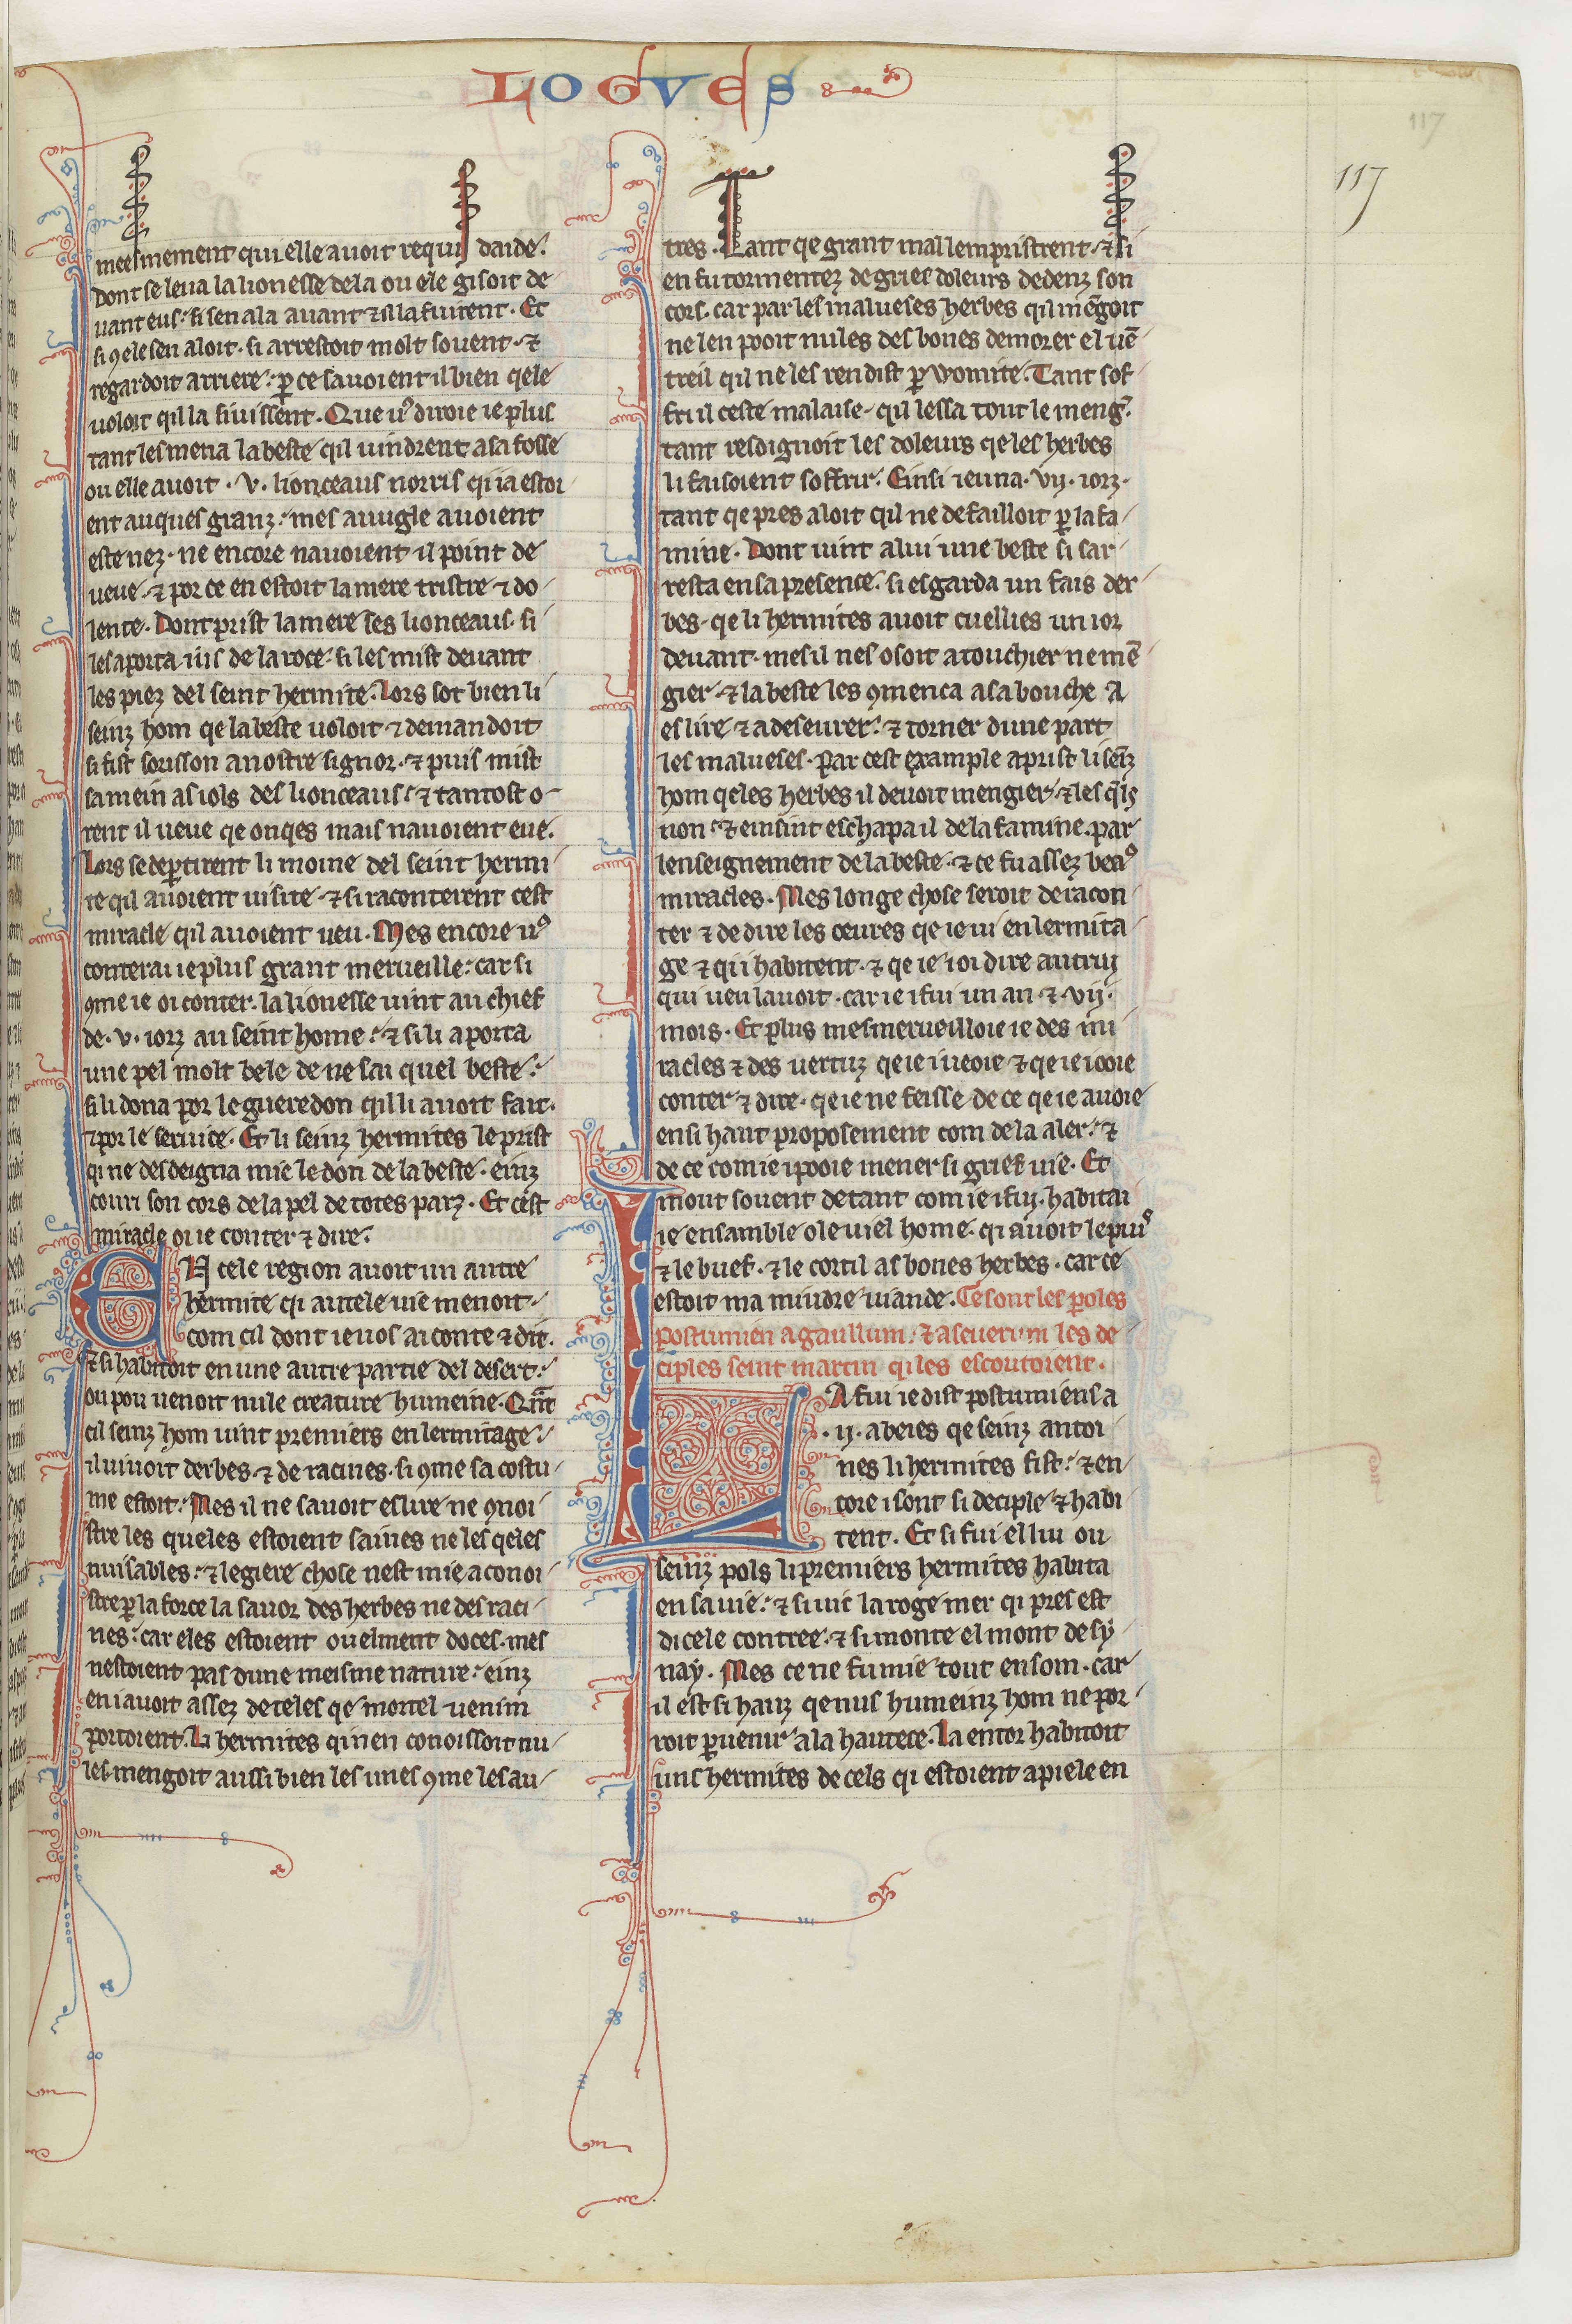 LOGVES
117
117
meesmement qui elle auoit requis daide.
Dont se leua la lionesse de la ou ele gisoit de
uant eus. si sen ala auant ⁊ il la siuirent. Et
si ꝯ ele sen aloit. si arrestoit molt souent. ⁊
regardoit arriere. ꝑ ce sauoient il bien qele
uoloit qil la siuissent. Que uꝰ diroie ie plus
tant les mena la beste qil uindrent a sa fosse
ou elle auoit .v. lionceaus norris qi ia estoi
ent auques granz. mes auugle auoient
este nez. ne encore nauoient il point de
ueue. ⁊ por ce en estoit la mere tristre ⁊ do
lente. Dont prist la mere ses lionceaus. si
les aporta iiis de la roce. si les mist deuant
les piez del seint hermite. Lors sot bien li
seinz hom qe la beste uoloit ⁊ demandoit
si fist sorisson a nostre signor. ⁊ puis mist
sa mein as iols des lionceaus. ⁊ tantost o
rent il ueue qe onqes mais nauoient eue.
Lors se deꝑtirent li moine del seint hermi
te qil auoient uisite. ⁊ si raconterent cest
miracle qil auoient ueu. Mes encore uꝰ
conterai ie plus grant merueille. car si
ꝯme ie oi conter. la lionesse uint au chief
de .v. iorz au seint home. ⁊ si li aporta
une pel molt bele de ne sai quel beste.
si li dona por le gueredon qil li auoit fait.
⁊ por le seruice. Et li seinz hermites le prist
qi ne desdeigna mie le don de la beste. einz
couri son cors de la pel de totes parz. Et cest
miracle oi ie conter ⁊ dire.
EN cele region auoit un autre
hermite qi autele uie menoit.
com cil dont ie uos ai conte ⁊ dit.
⁊ si habitoit en une autre partie del desert.
ou pou uenoit nule creature humeine. Qn̄t
cil seinz hom uint premiers en lermitage.
il uiuoit derbes. ⁊ de racines. si ꝯme sa costu
me estoit. Mes il ne sauoit eslire ne ꝯnoi
stre les queles estoient saines ne les qeles
nuisables. ⁊ legiere chose nest mie a conoi
stre ꝑ la force la sauor des herbes ne des raci
nes. car eles estoient ouelment doces. mes
nestoient pas dune meisme nature. einz
en i auoit assez de teles qe mortel uenim
portoient. Li hermites qi nen conoissoit nu
les. mengoit aussi bien les unes ꝯme les au
tres. Tant qe grant mal lempristrent. ⁊ si
en fu tormentez de gries doleurs dedenz son
cors. car par les malueses herbes qil mēgoit
ne len pooit nules des bones demorer el uē
treil qil ne les rendist ꝑ uomite. Tant sof
fri il ceste malaise. qil lessa tout le meng̾.
tant resdignoit les doleurs qe les herbes
li faisoient soffrir. Einsi ieuna .vij. iorz.
tant qe pres aloit qil ne defailloit ꝑ la fa
mine. Dont uint a lui une beste si sar
resta en sa presence. si esgarda un fais der
bes. qe li hermites auoit cuellies un ior
deuant. mes il nes osoit atouchier ne mē
gier. ⁊ la beste les ꝯmenca a sa bouche a
eslire ⁊ a deseurer. ⁊ torner dune part
les malueses. Par cest example aprist li seīz
hom qeles herbes il deuoit mengier. ⁊ les q̄ls
non. ⁊ einsint eschapa il de la famine. par
lenseignement de la beste. ⁊ ce fu assez beaꝰ
miracles. Mes longe chose seroit de racon
ter ⁊ de dire les oeures qe ie ui en lermita
ge ⁊ qi i habitent. ⁊ qe ie i oi dire autrui
qui ueu lauoit. car ie i fui un an ⁊ .vij.
mois. Et plus mesmerueilloie ie des mi
racles ⁊ des uertuz qe ie i ueoie ⁊ qe ie i ooie
conter ⁊ dire. qe ie ne feisse de ce qe ie auoie
en si haut proposement com de la aler. ⁊
de ce com ie i pooie mener si grief uie. Et
mout souent de tant com ie i fui. habitai
ie ensamble o le uiel home. qi auoit le puiꝰ
⁊ le buef. ⁊ le cortil as bones herbes. car ce
estoit ma miudre uiande. Ce sont les ꝑoles
postumien a gaullum. ⁊ a seuerum les de
ciples seint martin qi les escoutoient.
LA fui ie dist postumiens a
.ij. abeies qe seinz antoi
nes li hermites fist. ⁊ en
core i sont si deciple ⁊ habi
tent. Et si fui el liu ou
seinz pols li premiers hermites habita
en sa uie. ⁊ si uit la roge mer qi pres est
dicele contree. ⁊ si monte el mont de sy
nay. Mes ce ne fu mie tout en som. car
il est si hauz qe nus humeinz hom ne por
roit ꝑuenir a la hautece. La entor habitoit
uns hermites de cels qi estoient apiele en